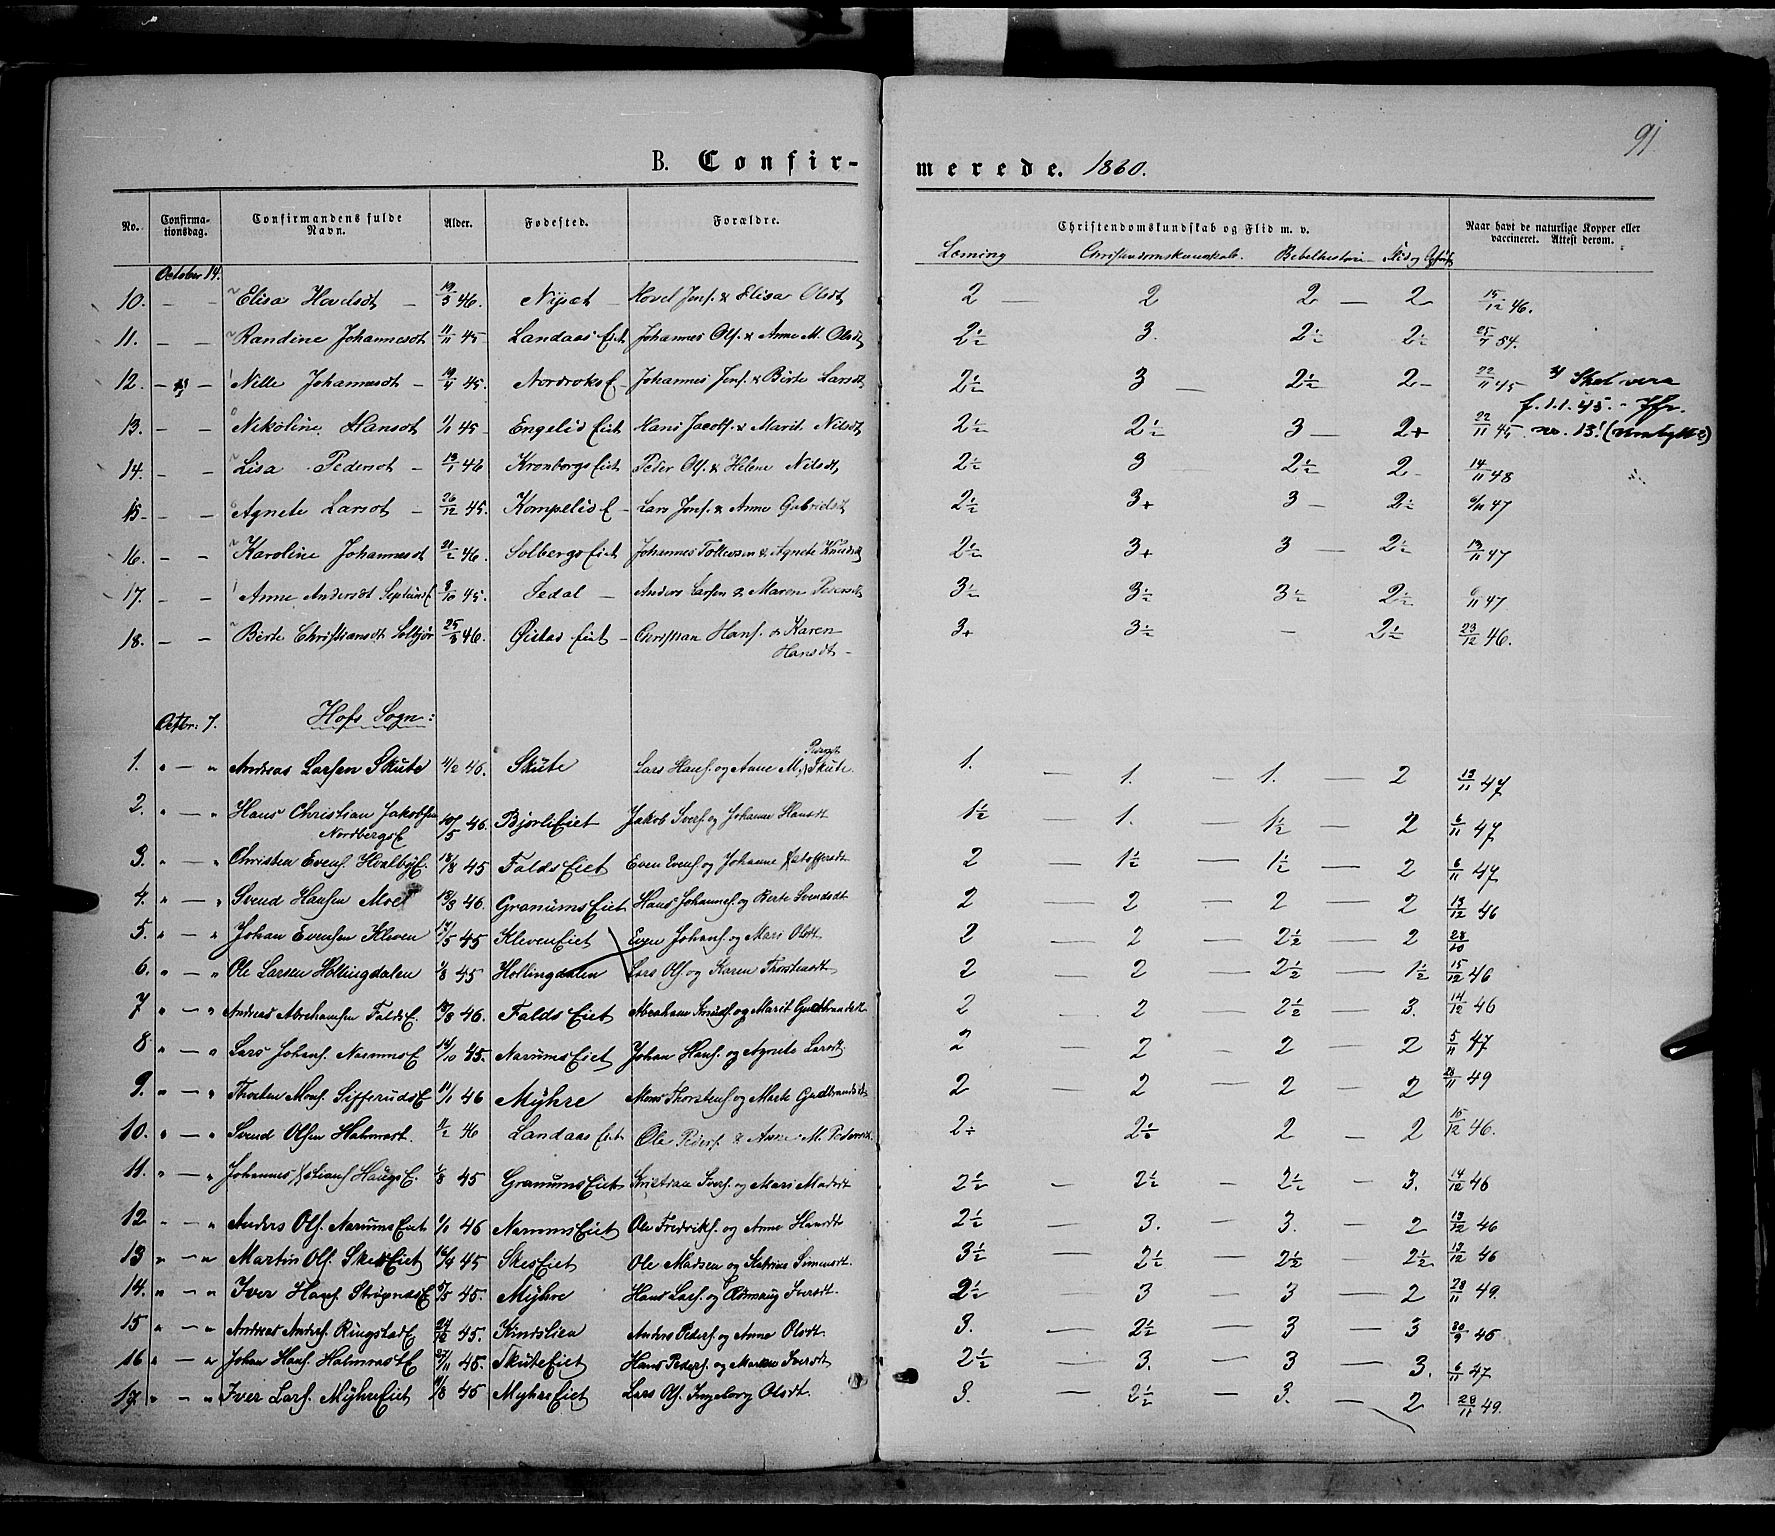 91
B. Confirmerede. 1860.
No. Confirmationsdag. Confirmandens fulde Navn. Alder. Fødested. Forældre. Christendomskundskab og Flid m. v. Naar havt de naturlige Kopper eller vaccineret. Attest derom.
Læsning Christendomskundskab. Bibelhistorie Flid og
October 14.
10. — — Elisa Hovelsdt — 19/5 46. Nysæt — Hovel Jens. & Elisa Olsdt 2 — 2 2 — 2 15/12 46.
11. — — Randine Johannesdt 11/11 45 Landaas Eiet Johannes Ols. & Anne M. Olsdt 2½ 3. 2½ 2½ 25/7 54.
12. — — Nille Johannesdt — 19/11 45. Nordroks E — Johannes Jens. & Birte Larsdt 2½ 3 — 2½ 2 — 22/11 45 Skal vera
f. 1.1.45. - Jfr.
13. — — Nikoline Hansdt 1/1 45 — Engelid Eiet Hans Jacobs. & Marit Nilsdt 2½ 2½ 3 — 2+ 22/11 45. no. 13! (ombytte)
14. — — Lisa Pedersdt — 13/1 46 Kronborgs Eiet Peder Ols. & Helene Nilsdt 2½ 3 2½ 2 — 14/11 48
15 — — Agnete Larsdt — 26/12 45. Kompelid E — Lars Jens. & Anne Gabrielsdt 2½ 3+ 3 — 2½ 6/11 47
16. — — Karoline Johannesdt 21/2 46. Solbergs Eiet Johannes Tollevsen & Agnete Knudsdt 2½ 3+ 3 — 2½ 13/11 47
17. — — Anne Andersdt 9/10 45. Sedal — Anders Larsen & Maren Pedersdt 3½ 3½ 3½ 2½ 6/11 47
18. — — Birte Christiansdt Solbjør 25/3 46. Øistad Eiet — Christian Hans. & Karen 3+ 3½ — 2½ 23/12 46.
Hansdt —
Octbr: 7. Hofs Sogn:
1. " — " Andreas Larsen Skute 4/2 46. Skute Lars Hans. og Anne M. Pedersdt Skute. 1. — 1. — 1. — 2 13/11 47
2. " — " Hans Christian Jakobsen 10/5 46. Bjørli Eiet Jakob Ivers. og Johanne Hansdt 1½ — 1. — 1½ — 2 6/11 47
Nordbergs E
3. " — " Christen Evens. Hvalby E. 18/8 45 Falds Eiet Even Evens. og Johanne Xstoffersdt 2 — 1½ — 1½ — 2 6/11 47
4. " — " Svend Hansen Moe 19/3 46. Granums Eiet Hans Johannes. og Berte Svendsdt 2 — 2 — 2 — 2 13/12 46
5. " — " Johan Evensen Kleven 17/5 45 Kleven Eiet Even Johans. og Mari Olsdt. 2 — 2 — 2½ — 2 28/60
6. " — " Ole Larsen Hollingdalen 1/8 45 Hollingdalen Lars Ols. og Karen Thorstensdt 2 — 2 — 2½ — 1½ 15/12 46
7 " — " Andreas Abrahamsen Falds E. 18/3 46. Falds Eiet Abraham Knuds. og Marit Gudbrandsdt 2 — 2 — 2½ — 3. 14/12 46
8 " — " Lars Johans. Narums E. 14/10 45. Narums Eiet Johan Hans. og Agnete Larsdt. 2 — 2 — 2 — 2 5/11 47
9. " — " Thorsten Mons. Sifferuds E 11/1 46 Myhre Mons Thorstens. og Marte Gudbrandsdt 2 — 2 — 2 — 2 28/11 49
10. " — " Svend Olsen Halmrast. 11/2 46 Landaas Eiet Ole Peders. & Anne M. Pedersdt. 2½ 2½ 2 — 2 15/12 46.
11. " — " Johannes Xstians. Haugs E. 1/8 45 Granums Eiet Kristian Ivers. og Mari Madsdt 2½ — 2½ — 2½ — 3. 14/12 46
12 " — " Anders Ols. Narums Eiet 1/1 46 Narums Eiet Ole Fredriks. og Anne Hansdt 2½ — 3. — 3. — 2 13/12 46
13 " — " Martin Ols. Skes Eiet 16/4 45 Skes Eiet Ole Madsen og Katrine Simensdt. 3½ — 2½ — 2½ — 2½ 13/12 46
14. " — " Iver Hans. E 5/5 45. Myhre Hans Lars. og Rønnaug Iversdt. 2½ — 3 — 3 — 2 28/11 49.
15 " — " Andreas Anders. Ringstad E 24/12 45. Kindslien Anders Peders. og Anne Olsdt. 3. — 2½ — 3 — 3 30/9 45
16 " — " Johan Hans. Halmrast E 27/11 45. Skute Eiet Hans Peders. og Marthe Iversdt 2½ — 3. — 3 — 3. 6/11 47
17. " — " Iver Lars. Myhre Eiet 11/8 45 Myhre Eiet Lars Ols. Ingeborg Olsdt. 3. — 2½ — 3. — 2 28/11 49.